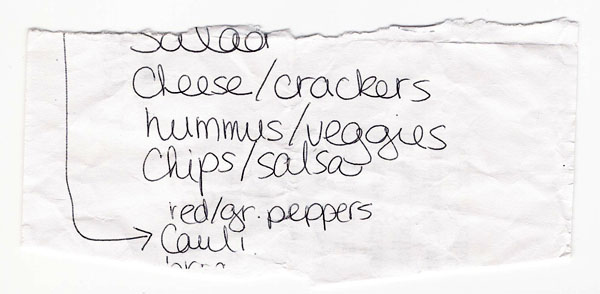 Salad
Cheese/crackers
hummus/veggies
Chips/salsa
red/gr. peppers
Cauli.